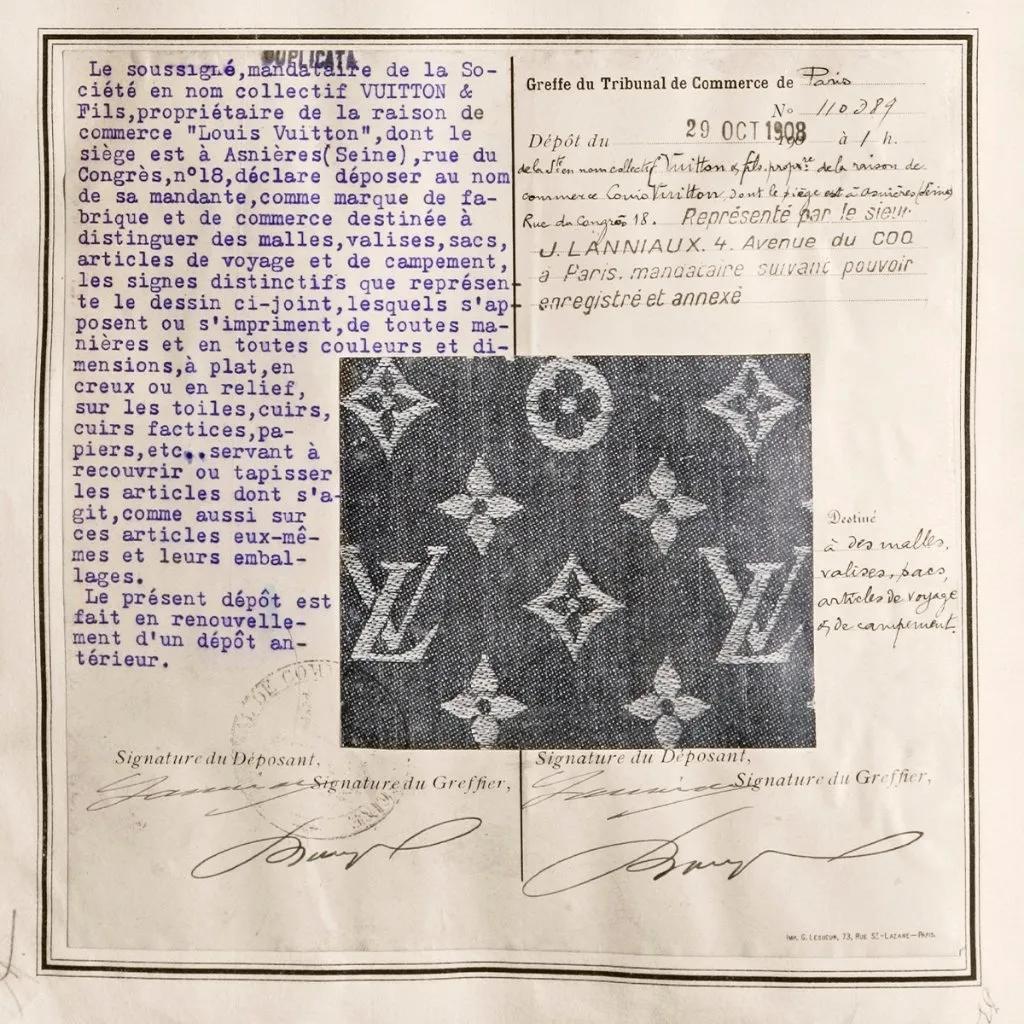 DUPLICATA
Le soussigné,mandataire de la So-
ciété en nom collectif VUITTON &
Fils,propriétaire de la raison de
commerce "Louis Vuitton",dont le
siège est à Asnières(Seine),rue du
Congrès,n°18,déclare déposer au nom
de sa mandante,comme marque de fa-
brique et de commerce destinée à
distinguer des malles,valises,sacs,
articles de voyage et de campement,
les signes distinctifs que représen-
te le dessin ci-joint,lesquels s'ap-
posent ou s'impriment,de toutes ma-
nières et en toutes couleurs et di-
mensions,à plat,en
creux ou en relief,
sur les toiles,cuirs,
cuirs factices,pa-
piers,etc..servant à
recouvrir ou tapisser
les articles dont s'a-
git,comme aussi sur
ces articles eux-mê-
mes et leurs embal-
lages.
Le présent dépôt est
fait en renouvelle-
ment d'un dépôt an-
térieur.
Signature du Déposant,
Signature du Greffier,
Greffe du Tribunal de Commerce de Paris
N° 110389
Dépôt du 29 OCT 1908 à 1 h.
de la Sté en nom collectif Vuitton & fils, propre de la raison de
commerce Louis Vuitton, dont le siège est à Asnières (Seine)
Rue du Congrès 18. Représenté par le sieur
J. LANNIAUX. 4. Avenue du COQ
à Paris. mandataire suivant pouvoir
enregistré et annexé
LV LV
Destiné
à des malles,
valises, sacs,
articles de voyage
& de campement.
Signature du Déposant,
Signature du Greffier,
IMP. G. LESUEUR, 73, RUE ST-LAZARE—PARIS.